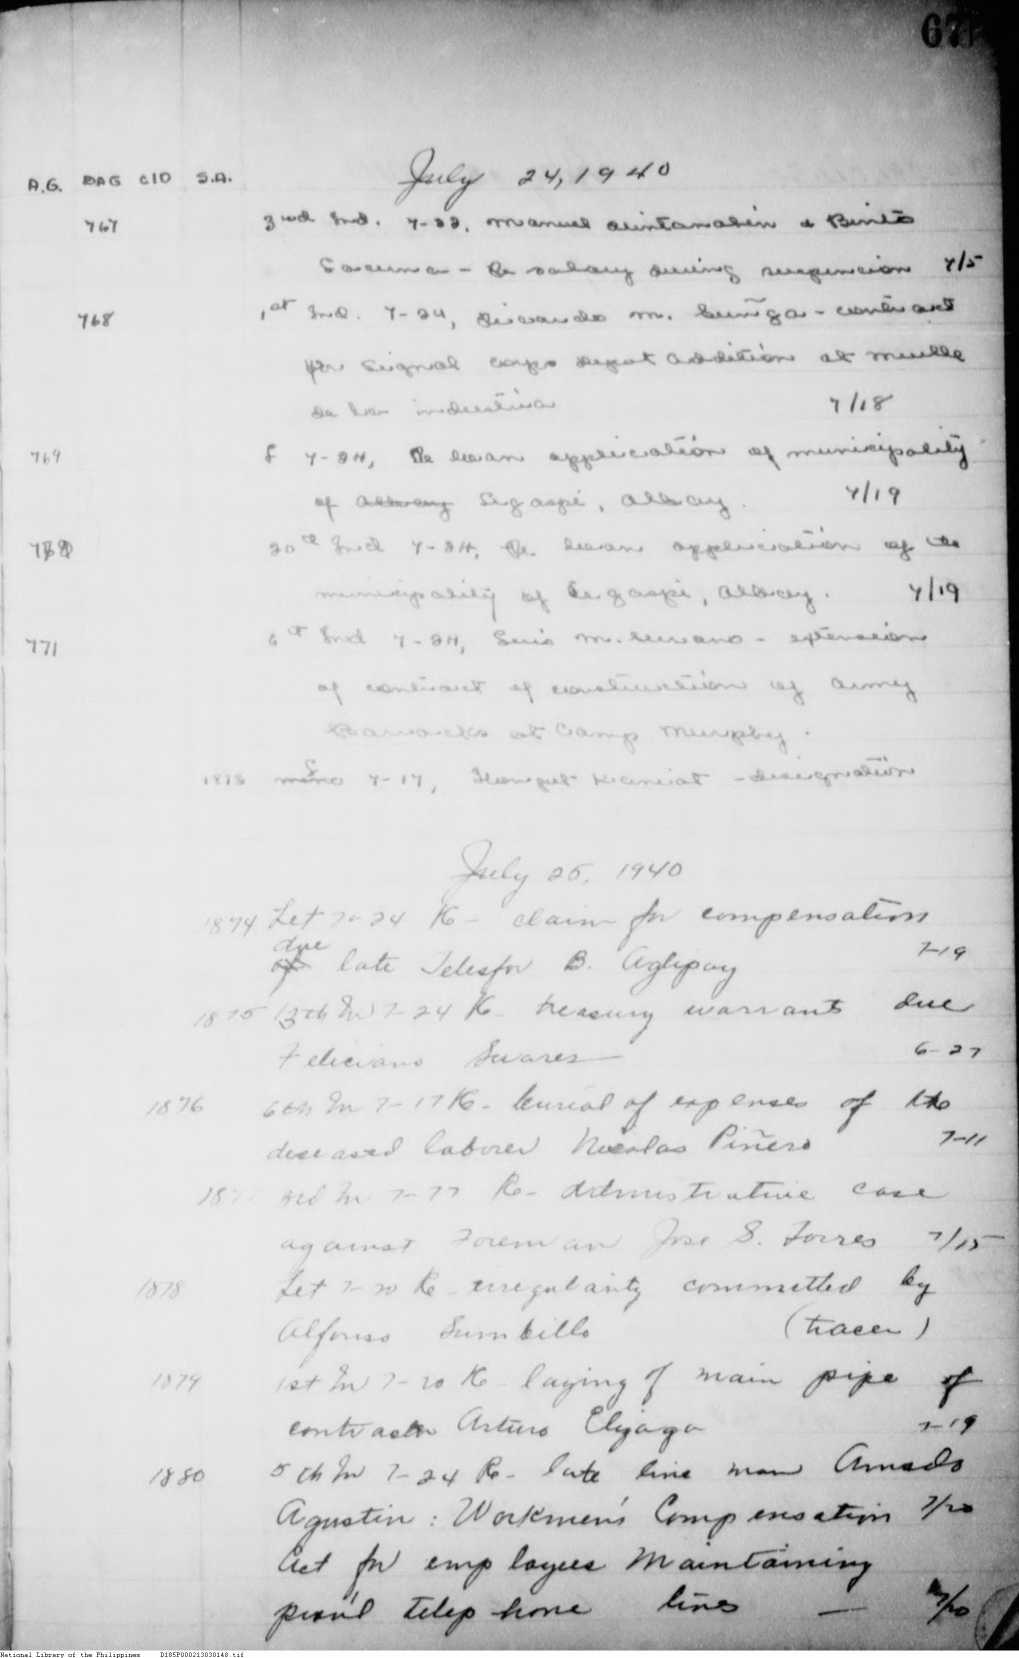 67
A.G. DAG CIO S.A.
July 24, 1940
767 3rd Ind. 7-23, Manuel Quintanabin & Benito
- Re salary during suspension 7/5
768 1st Ind. 7-24, M. Zuñiga - contract
for Signal Corps Depot Addition at Muelle
de la Industria 7/18
769 L 7-24, Re loan application of municipality
of Albay Legaspi, Albay. 7/19
20th Ind 7-24, Re loan application of the
municipality of Legaspi, Albay. 7/19
771 6th Ind 7-24, Luis M. - extension
of contract of construction of Army
Barracks at Camp Murphy.
1873 7-17, - designation
July 25, 1940
1874 Let 7-24 Re - claim for compensation
due
of late Telesfor B. Aglipay 7-19
1875 13th In 7-24 Re - treasury warrants due
Feliciano Suares 6-27
1876 6th In 7-17 Re - burial of expenses of the
deseased laborer Nicolas Piñero 7-11
3rd In Re - Administrative case
against Foreman Jose S. Torres 7/15
1878 Let 7-20 Re - irregularity committed by
Alfonso Sumbillo (tracer)
1879 1st In 7-20 Re - laying of main pipe of
contractor Arturo Elizaga 7-19
1880 5th In 7-24 Re - late line man Amado
Agustin : Workmen's Compensation 7/20
Act for employees Maintaining
prov'l telephone lines — 7/20
National Library of the Philippines D185P000213030148.tif